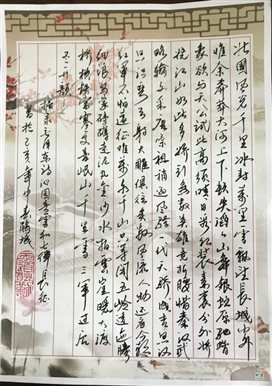 北国风光千里冰封万里雪飘望长城内外
唯余莽莽大河上下顿失滔滔山舞银蛇原驰蜡
象欲与天公试比高须晴日看红装素裹分外妖
娆江山如此多娇引无数英雄竞折腰惜秦皇汉武
略输文采唐宗宋祖稍逊风骚一代天骄成吉思汗
只识弯弓射大雕俱往矣数风流人物还看今朝
红军不怕远征难万水千山只等闲五岭逶迤腾
细浪乌蒙磅礴走泥丸金沙水拍云崖暖大渡
桥横铁索寒更喜岷山千里雪三军过后
尽开颜
录毛泽东诗沁园春雪和七律长征
书于己亥年